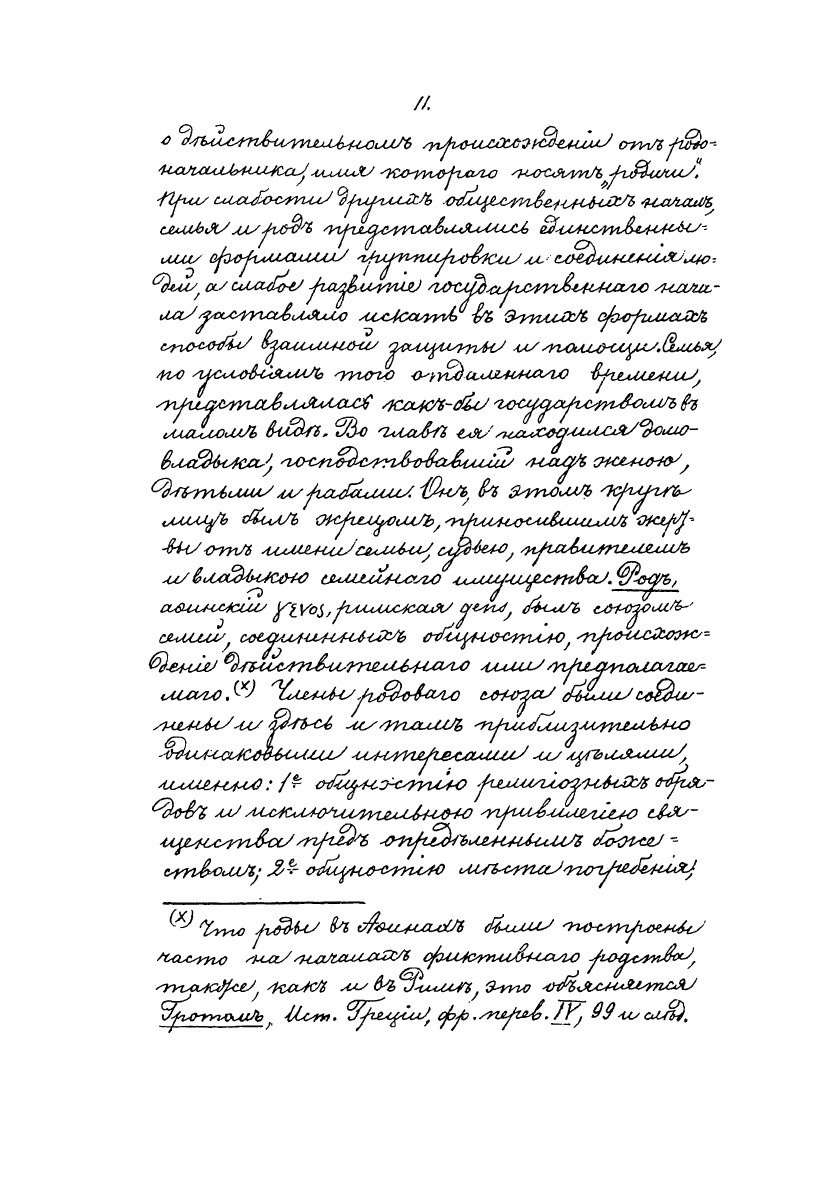 11.
о дѣйствительномъ происхожденіи отъ родо=
начальника, имя котораго носятъ „родичи".
При слабости другихъ общественныхъ началъ,
семья и родъ представлялись единственны=
ми формами группировки и соединенія лю=
дей, а слабое развитіе государственнаго нача-
ла заставляло искать въ этихъ формахъ
способы взаимной защиты и помощи. Семья,
по условіямъ того отдаленнаго времени,
представлялась какъ-бы государствомъ въ
маломъ видѣ. Во главѣ ея находился домо-
владыка, господствовавшій надъ женою,
дѣтьми и рабами. Онъ, въ этомъ кругѣ
лицъ былъ жрецомъ, приносившимъ жерт-
вы отъ имени семьи, судьею, правителемъ
и владыкою семейнаго имущества. Родъ,
аѳинскій γένος, римская gens, былъ союзомъ
семей, соединенныхъ общностію, происхож=
деніе дѣйствительнаго или предполагае=
маго. (х) Члены родоваго союза были соеди-
нены и здѣсь и тамъ приблизительно
одинаковыми интересами и цѣлями,
именно: 1е общностію религіозныхъ обря-
довъ и исключительною привилегіею свя-
щенства предъ опредѣленнымъ боже=
ствомъ; 2е общностію мѣста погребенія;
(х) Что роды въ Аѳинахъ были построены
часто на началахъ фиктивнаго родства,
также, какъ и въ Римѣ, это объясняется
Гротомъ, Ист. Греціи, фр. перев. IV, 99 и слѣд.